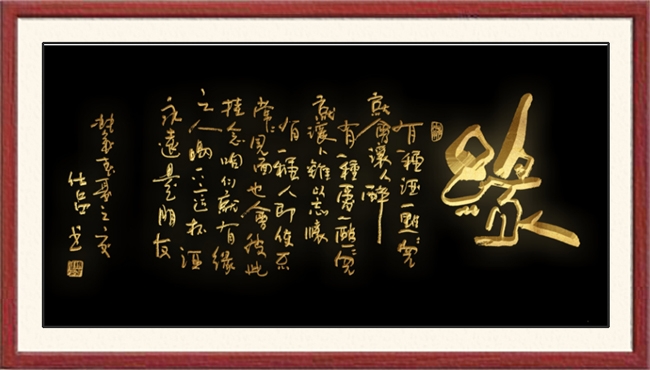 緣
有一種酒一
就會讓人醉
有一種一
就讓人難以忘懷
有一種人即使不
常見面也會彼此
掛念咱们就有缘
之人喝下這杯酒
永遠是朋友
之友